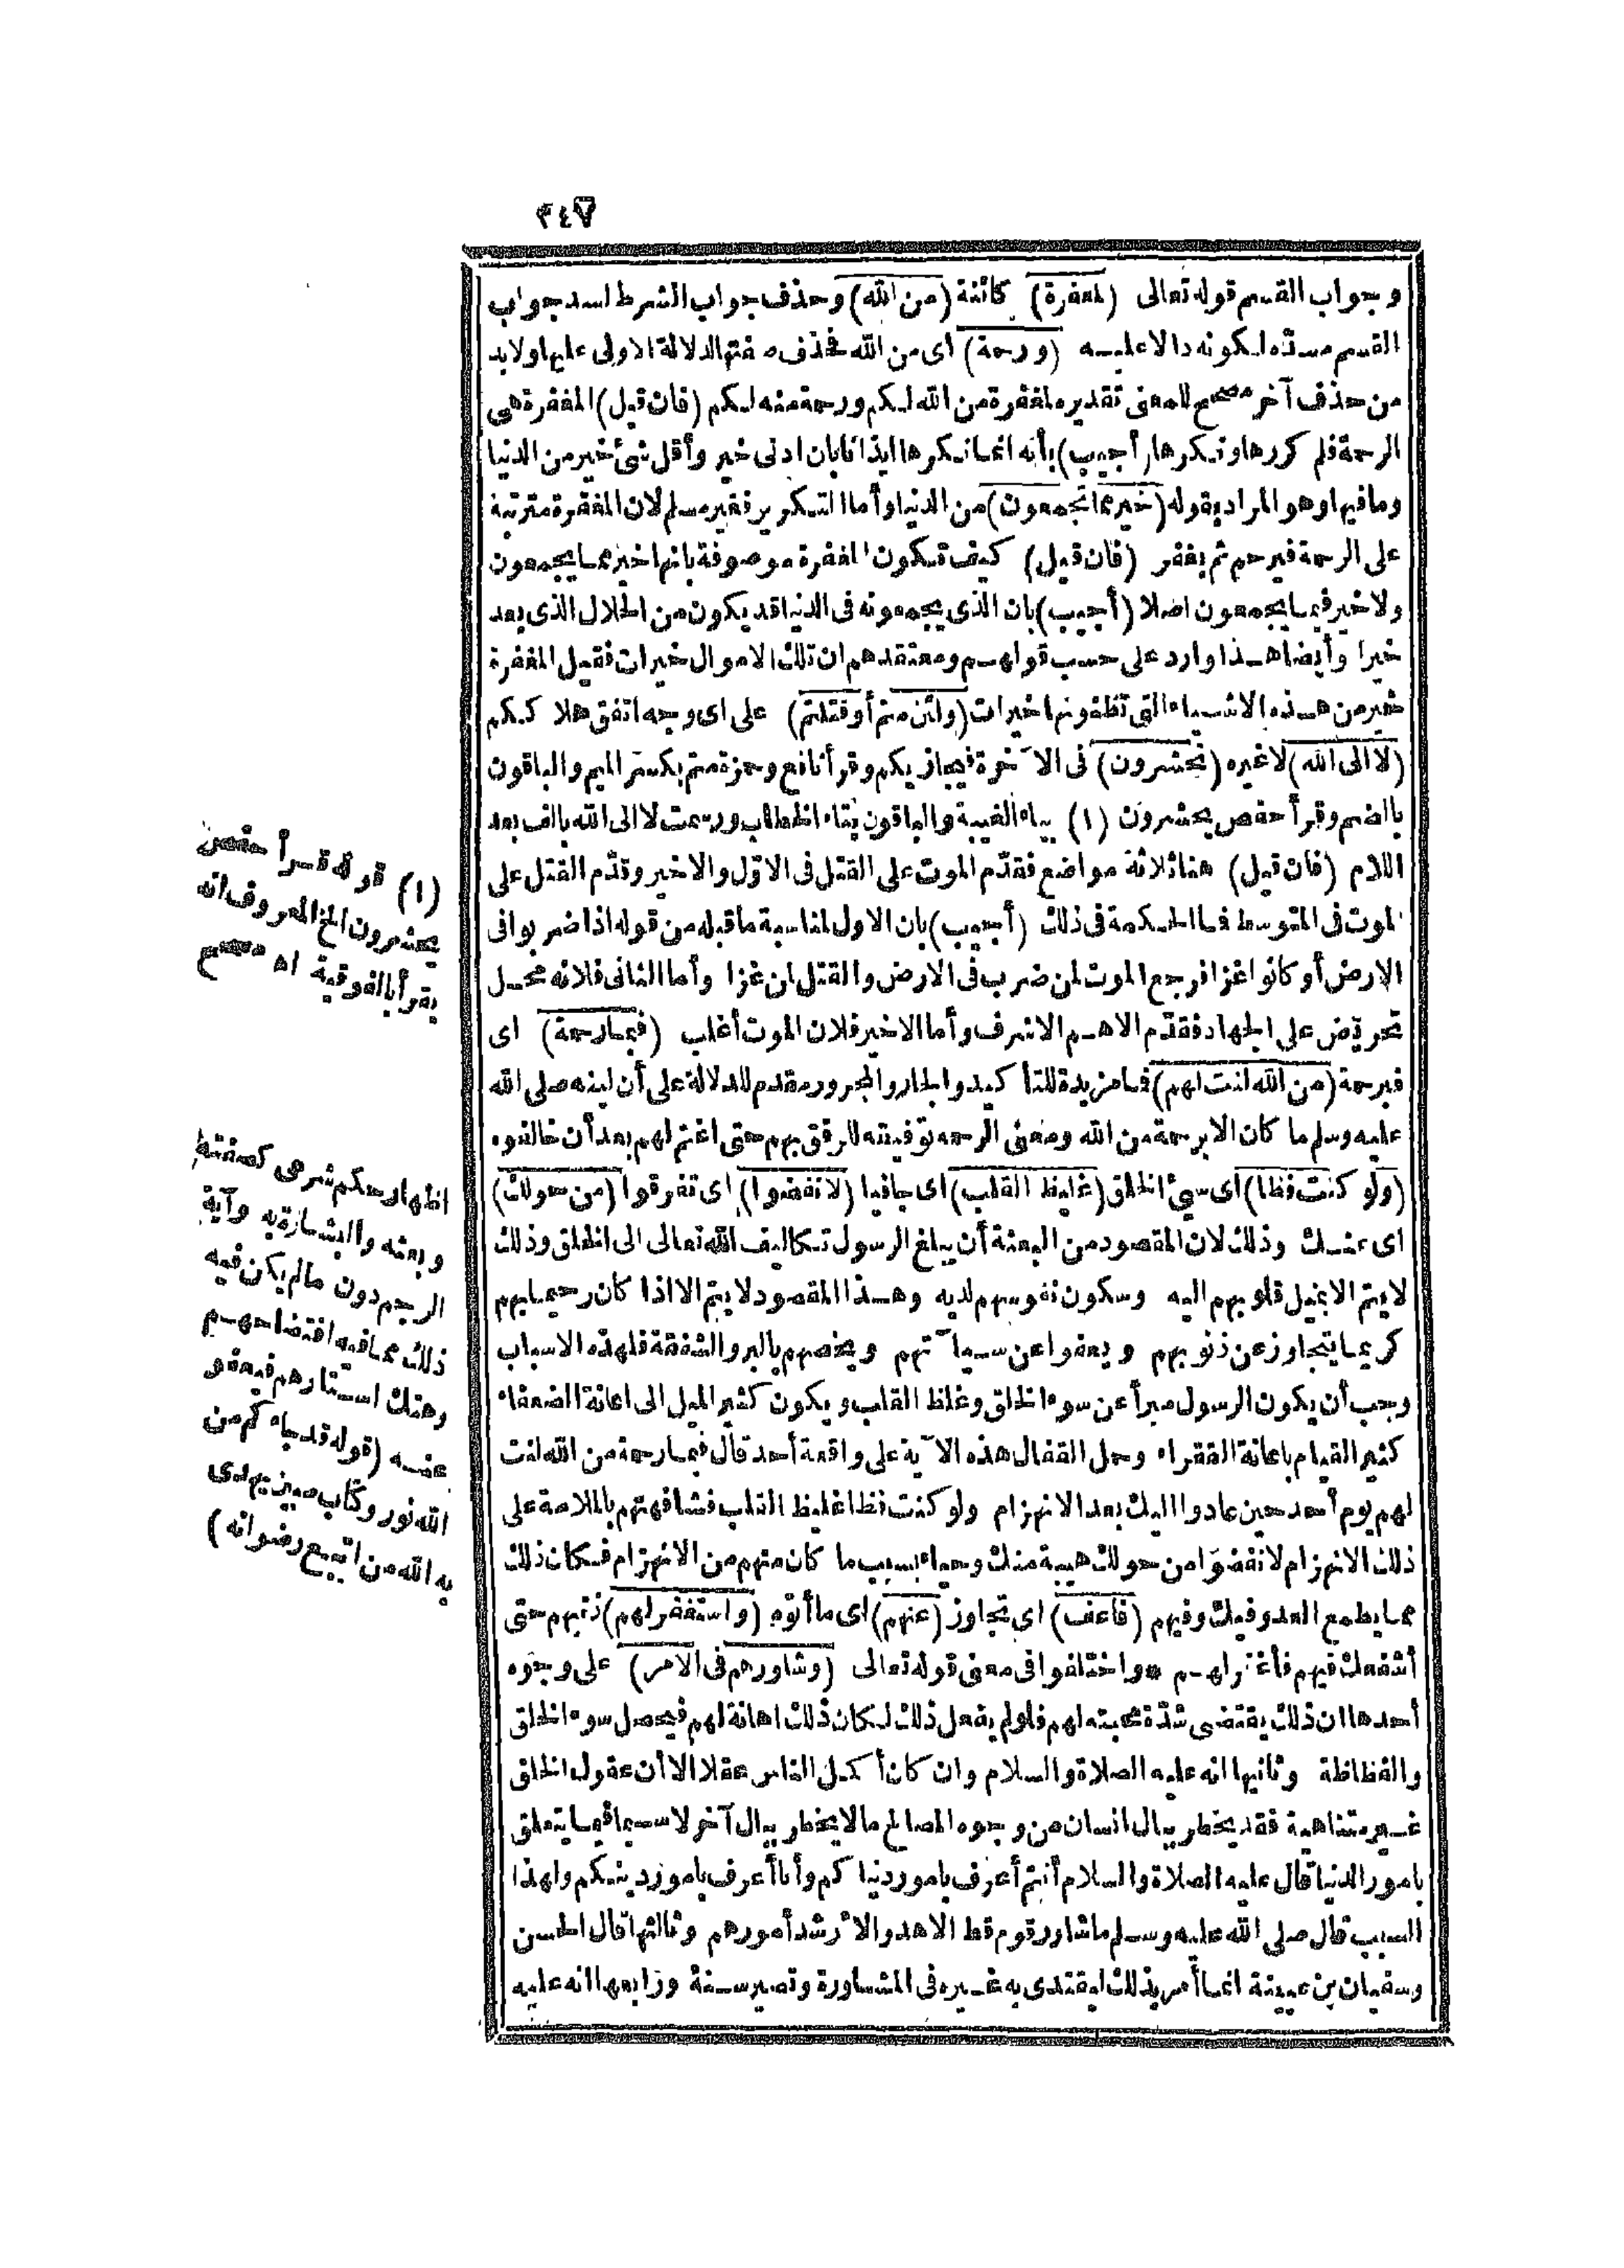 ٢٤٧
وجواب القسم قوله تعالى (لمغفرة) كائنة (من الله) وحذف جواب الشرط لسد جواب
القسم مسدّه لكونه دالا عليه (ورحمة) اى من الله فحذف صفتها لدلالة الاولى عليها ولابد
من حذف آخر مصحح للمعنى تقديره لمغفرة من الله لكم ورحمة منه لكم (فان قيل) المغفرة هى
الرحمة فلم كررها ونكرها (أجيب) بأنه انما نكرها ايذانا بان ادنى خير وأقل شئ خير من الدنيا
وما فيها وهو المراد بقوله (خير مما تجمعون) من الدنيا وأما التكرير فغير مسلم لان المغفرة مترتبة
على الرحمة فيرحم ثم يغفر (فان قيل) كيف تكون المغفرة موصوفة بانها خير مما يجمعون
ولا خير فيما يجمعون اصلا (أجيب) بان الذى يجمعونه فى الدنيا قد يكون من الحلال الذى يعد
خيرا وأيضا هذا وارد على حسب قولهم ومعتقدهم ان تلك الاموال خيرات فقيل المغفرة
خير من هذه الاشياء التى تظنونها خيرات (ولئن متم أو قتلتم) على اى وجه اتفق هلاككم
(لالى الله) لا غيره (تحشرون) فى الآخرة فيجازيكم وقرأ نافع وحمزة متم بكسر الميم والباقون
بالضم وقرأ حفص يحشرون (١) بياء الغيبة والباقون بتاء الخطاب ورسمت لا الى الله بالف بعد
اللام (فان قيل) هنا ثلاثة مواضع فقدّم الموت على القتل فى الاوّل والاخير وقدّم القتل على
الموت فى المتوسط فما الحكمة فى ذلك (أجيب) بان الاول لمناسبة ما قبله من قوله اذا ضربوا فى
الارض أو كانوا غزا فرجع الموت لمن ضرب فى الارض والقتل لمن غزا وأما الثانى فلانه محل
تحريض على الجهاد فقدّم الاهم الاشرف وأما الاخير فلان الموت أغلب (فبما رحمة) اى
فبرحمة (من الله لنت لهم) فما مزيدة للتأكيد والجار والمجرور مقدم للدلالة على أن لينه صلى الله
عليه وسلم ما كان الا برحمة من الله ومعنى الرحمه توفيقه للرفق بهم حتى اغتم لهم بعد أن خالفوه
(ولو كنت فظا) اى سيئ الخلق (غليظ القلب) اى جافيا (لانفضوا) اى تفرقوا (من حولك)
اى عنك وذلك لان المقصود من البعثة أن يبلغ الرسول تكاليف الله تعالى الى الخلق وذلك
لا يتم الا بميل قلوبهم اليه وسكون نفوسهم لديه وهذا المقصود لا يتم الا اذا كان رحيما بهم
كريما يتجاوز عن ذنوبهم ويعفو عن سيآتهم ويخصهم بالبر والشفقة فلهذه الاسباب
وجب أن يكون الرسول مبرأ عن سوء الخلق وغلظ القلب ويكون كثير الميل الى اعانة الضعفاء
كثير القيام باعانة الفقراء وحمل القفال هذه الآية على واقعة أحد قال فبما رحمة من الله لنت
لهم يوم أحد حين عادوا اليك بعد الانهزام ولو كنت فظا غليظ القلب فشافهتهم بالملامة على
ذلك الانهزام لانفضوا من حولك هيبة منك وحياء بسبب ما كان منهم من الانهزام فكان ذلك
مما يطمع العدو فيك وفيهم (فاعف) اى تجاوز (عنهم) اى ما أتوه (واستغفر لهم) ذنبهم حتى
أشفعك فيهم فأغفر لهم * واختلفوا فى معنى قوله تعالى (وشاورهم فى الامر) على وجوه
أحدها ان ذلك يقتضى شدّة محبته لهم فلو لم يفعل ذلك لكان ذلك اهانة لهم فيحصل سوء الخلق
والفظاظة وثانيها انه عليه الصلاة والسلام وان كان أكمل الناس عقلا الا أن عقول الخلق
غير متناهية فقد يخطر ببال انسان من وجوه المصالح ما لا يخطر ببال آخر لا سيما فيما يتعلق
بامور الدنيا قال عليه الصلاة والسلام أنتم أعرف بامور دنياكم وأنا أعرف بامور دينكم ولهذا
السبب قال صلى الله عليه وسلم ما شاور قوم قط الا هدوا لأرشد أمورهم وثالثها قال الحسن
وسفيان بن عيينة انما أمر بذلك ليقتدى به غيره فى المشاورة وتصير سنة ورابعها انه عليه
(١) قوله قرأ حفص
يحشرون الخ المعروف انه
يقرأ بالفوقية اه مصحح
اظهار حكم شرعى كصفته
وبعثه والبشارة به وآية
الرجم دون ما لم يكن فيه
ذلك مما فيه افتضاحهم
وهتك استارهم فيعفو
عنه (قوله قد جاءكم من
الله نور وكتاب مبين يهدى
به الله من اتبع رضوانه)